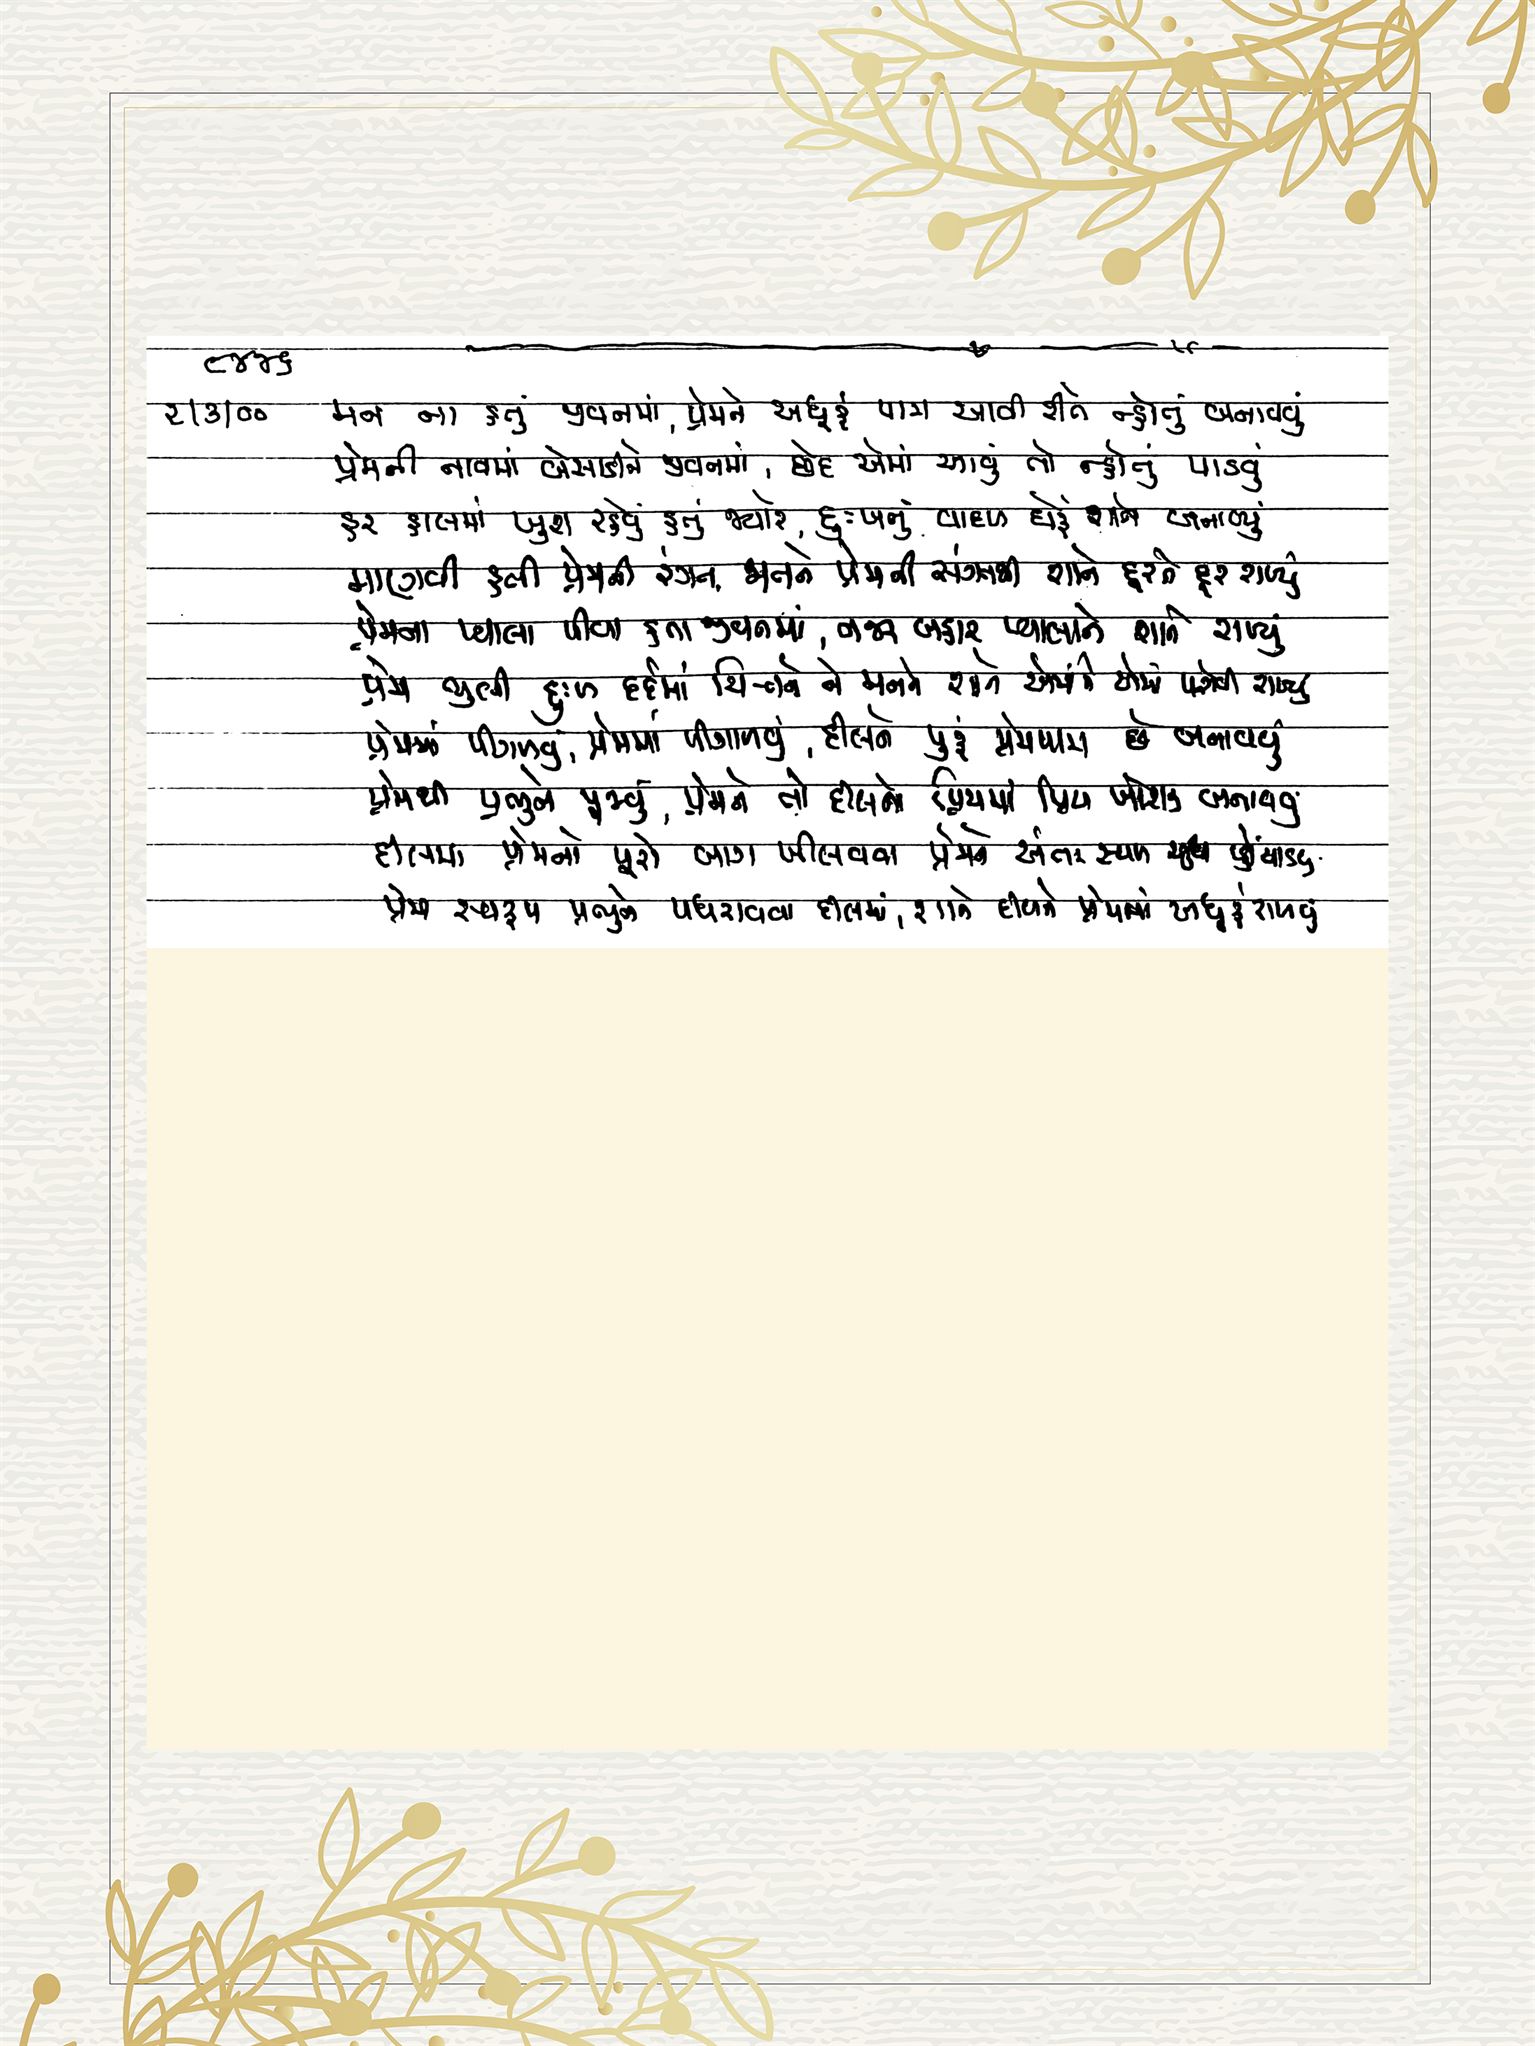 ૮૪૪૬
૨/૩/૦૦ મન ના હતું જીવનમાં, પ્રેમને અધૂરું પાત્ર આવી રીતે ન્હોતું બનાવવું
પ્રેમની નાવમાં બેસાડીને જીવનમાં, છેદ એમાં આવું તો ન્હોતું પાડવું
હર હાલમાં ખુશ રહેવું હતું જ્યારે, દુઃખનું વાદળ ઘેરું શાને બનાવ્યું
માણવી હતી પ્રેમની રંગત, મનને પ્રેમની સંગતથી શાને દૂરને દૂર રાખ્યું
પ્રેમના પ્યાલા પીવા હતા જીવનમાં, નજર બહાર પ્યાલાને શાને રાખ્યું
પ્રેમ ભુલી દુઃખ દર્દમાં ચિત્તને ને મનને શાને એમાંને એમાં પરોવી રાખ્યું
પ્રેમમાં પીગળવું, પ્રેમમાં પીગાળવું, દીલને પુરું પ્રેમપાત્ર છે બનાવવું
પ્રેમથી પ્રભુને પૂજવું, પ્રેમને તો દીલનો પ્રિયમાં પ્રિય ખોરાક બનાવવું
દીલમાં પ્રેમનો પૂરો બાગ ખીલવવા પ્રેમને અંતર સ્થળ પ્હોંચાડવું
પ્રેમ સ્વરૂપ પ્રભુને પધરાવવા દીલમાં, શાને દીલને પ્રેમમાં અધૂરું રાખવું